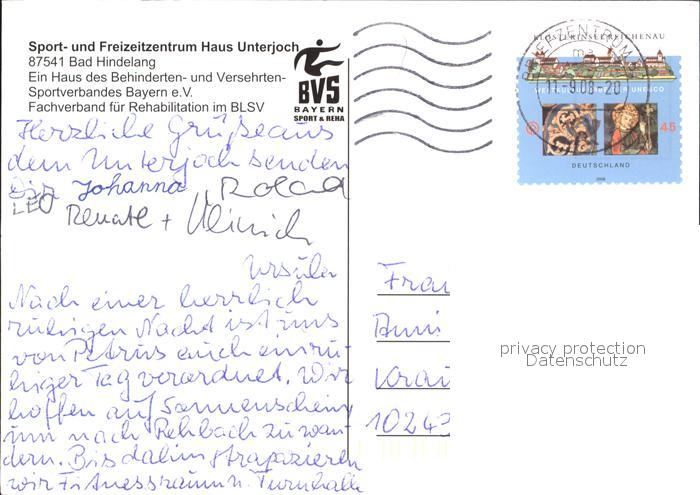 Sport- und Freizeitzentrum Haus Unterjoch
87541 Bad Hindelang
Ein Haus des Behinderten- und Versehrten-
Sportverbandes Bayern e.V.
Fachverband für Rehabilitation im BLSV
BVS
BAYERN
SPORT & REHA
KLOSTERINSEL REICHENAU
WELTKULTURERBE DER UNESCO
45
DEUTSCHLAND
2008
BRIEFZENTRUM
Herzliche Grüße aus
dem Unterjoch senden
Dir Johanna Roland
LEO
Renate + Ulrich
Ursula
Nach einer herrlich
ruhigen Nacht ist uns
von Petrus auch ein ru-
higer Tag verordnet. Wir
hoffen auf Sonnenschein
um nach Rehbach zu wan-
dern. Bis dahin strapazieren
wir Fitnessraum u. Turnhalle
Frau
Anni
Krau
10243
privacy protection
Datenschutz